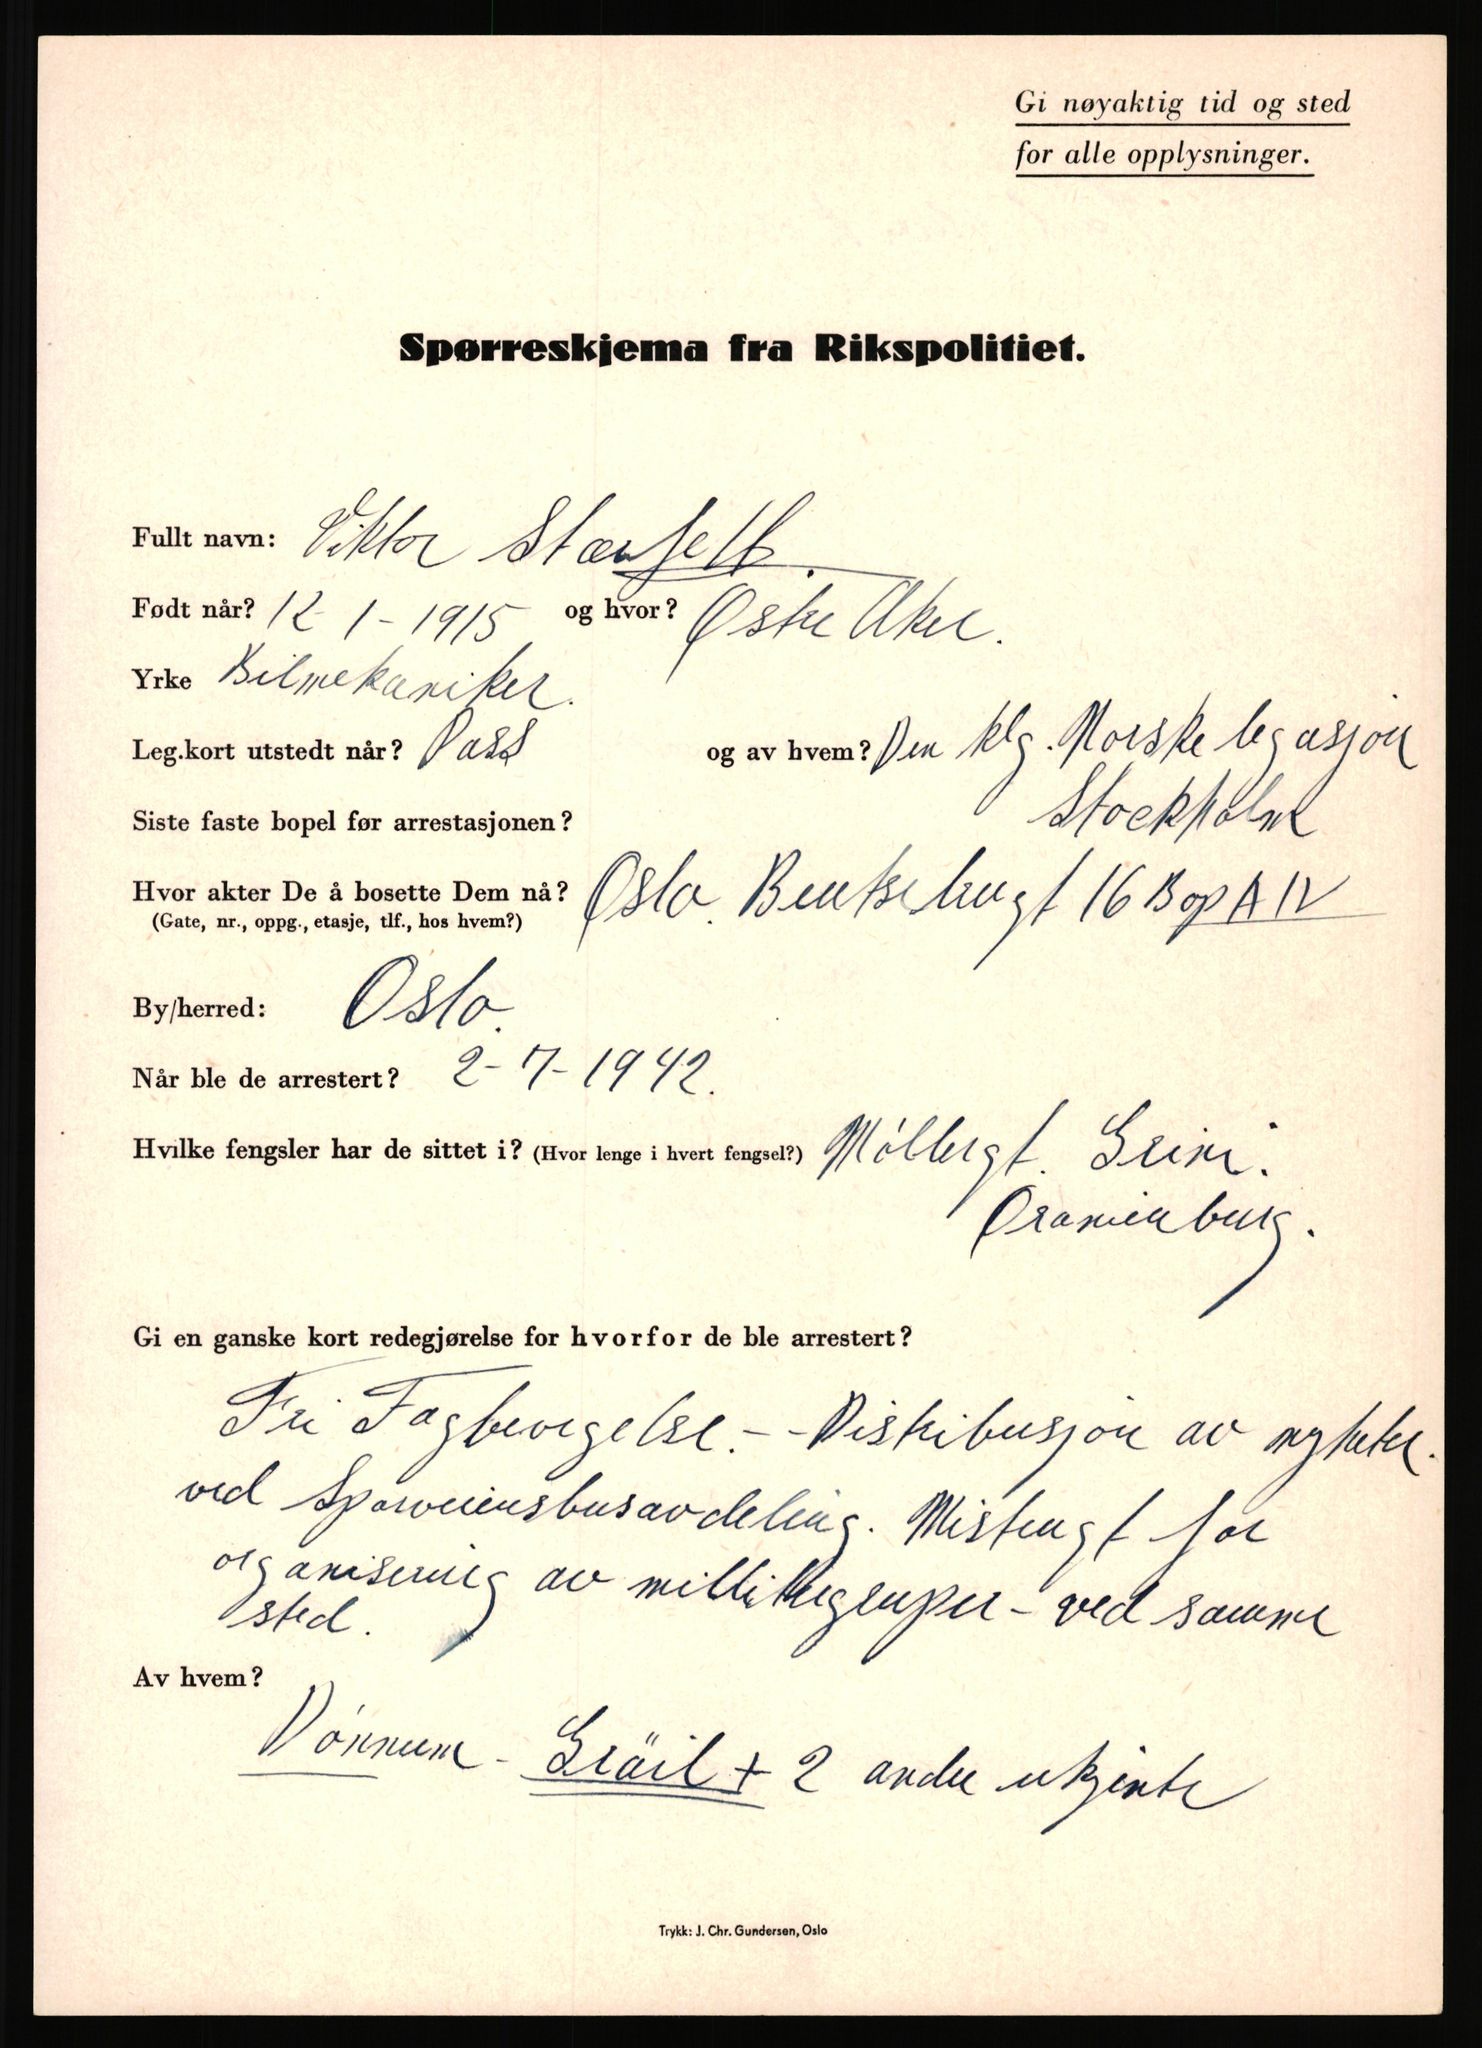 Gi nøyaktig tid og sted
for alle opplysninger.
Spørreskjema fra Rikspolitiet.
Fullt navn: Viktor
Født når? 12 - 1 - 1915 og hvor? Østre Aker.
Yrke Bilmekaniker.
Leg.kort utstedt når? Pass og av hvem? Den klg. Norske legasjon
Siste faste bopel før arrestasjonen? Stockholm
Hvor akter De å bosette Dem nå? Oslo. Bentsebrugt 16 B op A IV
(Gate, nr., oppg., etasje, tlf., hos hvem?)
By/herred: Oslo.
Når ble de arrestert? 2-7-1942.
Hvilke fengsler har de sittet i? (Hvor lenge i hvert fengsel?) Møllergt. Grini.
Oranienburg.
Gi en ganske kort redegjørelse for hvorfor de ble arrestert?
Fri Fagbevegelse. - - Distribusjon av nyheter.
ved Sporveiensbusavdeling. Mistengt for
organisering av millitærgruper - ved samme
sted.
Av hvem?
Dønnum - + 2 andre ukjente
Trykk: J. Chr. Gundersen, Oslo